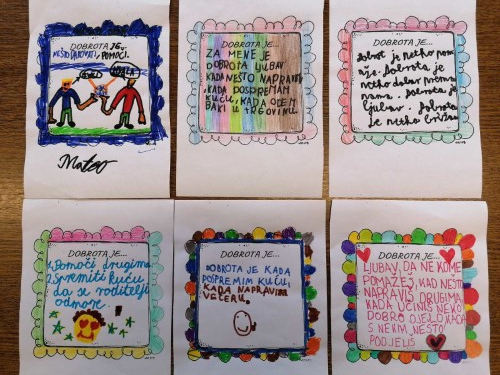 DOBROTA JE...
NEŠTO DAROVATI, POMOĆI.
HVALA
Mateo
DOBROTA JE...
ZA MENE JE
DOBROTA LJUBAV
KADA NEŠTO NAPRAVIM
,KADA POSPREMIM
KUĆU, KADA ODEM
BAKI U TRGOVINU.
DOBROTA JE...
Dobrot je netko
Dobrota je
netko dobar prema
nama. Dobrota je
ljubav. Dobrota
je netko
DOBROTA JE...
1. Pomoći drugima
2. Spremiti kuću
da se roditelji
odmore.
DOBROTA JE...
DOBROTA JE KADA
POSPREMIM KUĆU,
KADA NAPRAVIM
VEČERU.
DOBROTA JE...
LJUBAV, DA NE KOME
POMAŽEŠ, KAD NEŠTO
NAPRAVIŠ DRUGIMA
KADA UČINIŠ NEKO
DOBRO DJELO, KADA
S NEKIM NEŠTO
PODJELIŠ